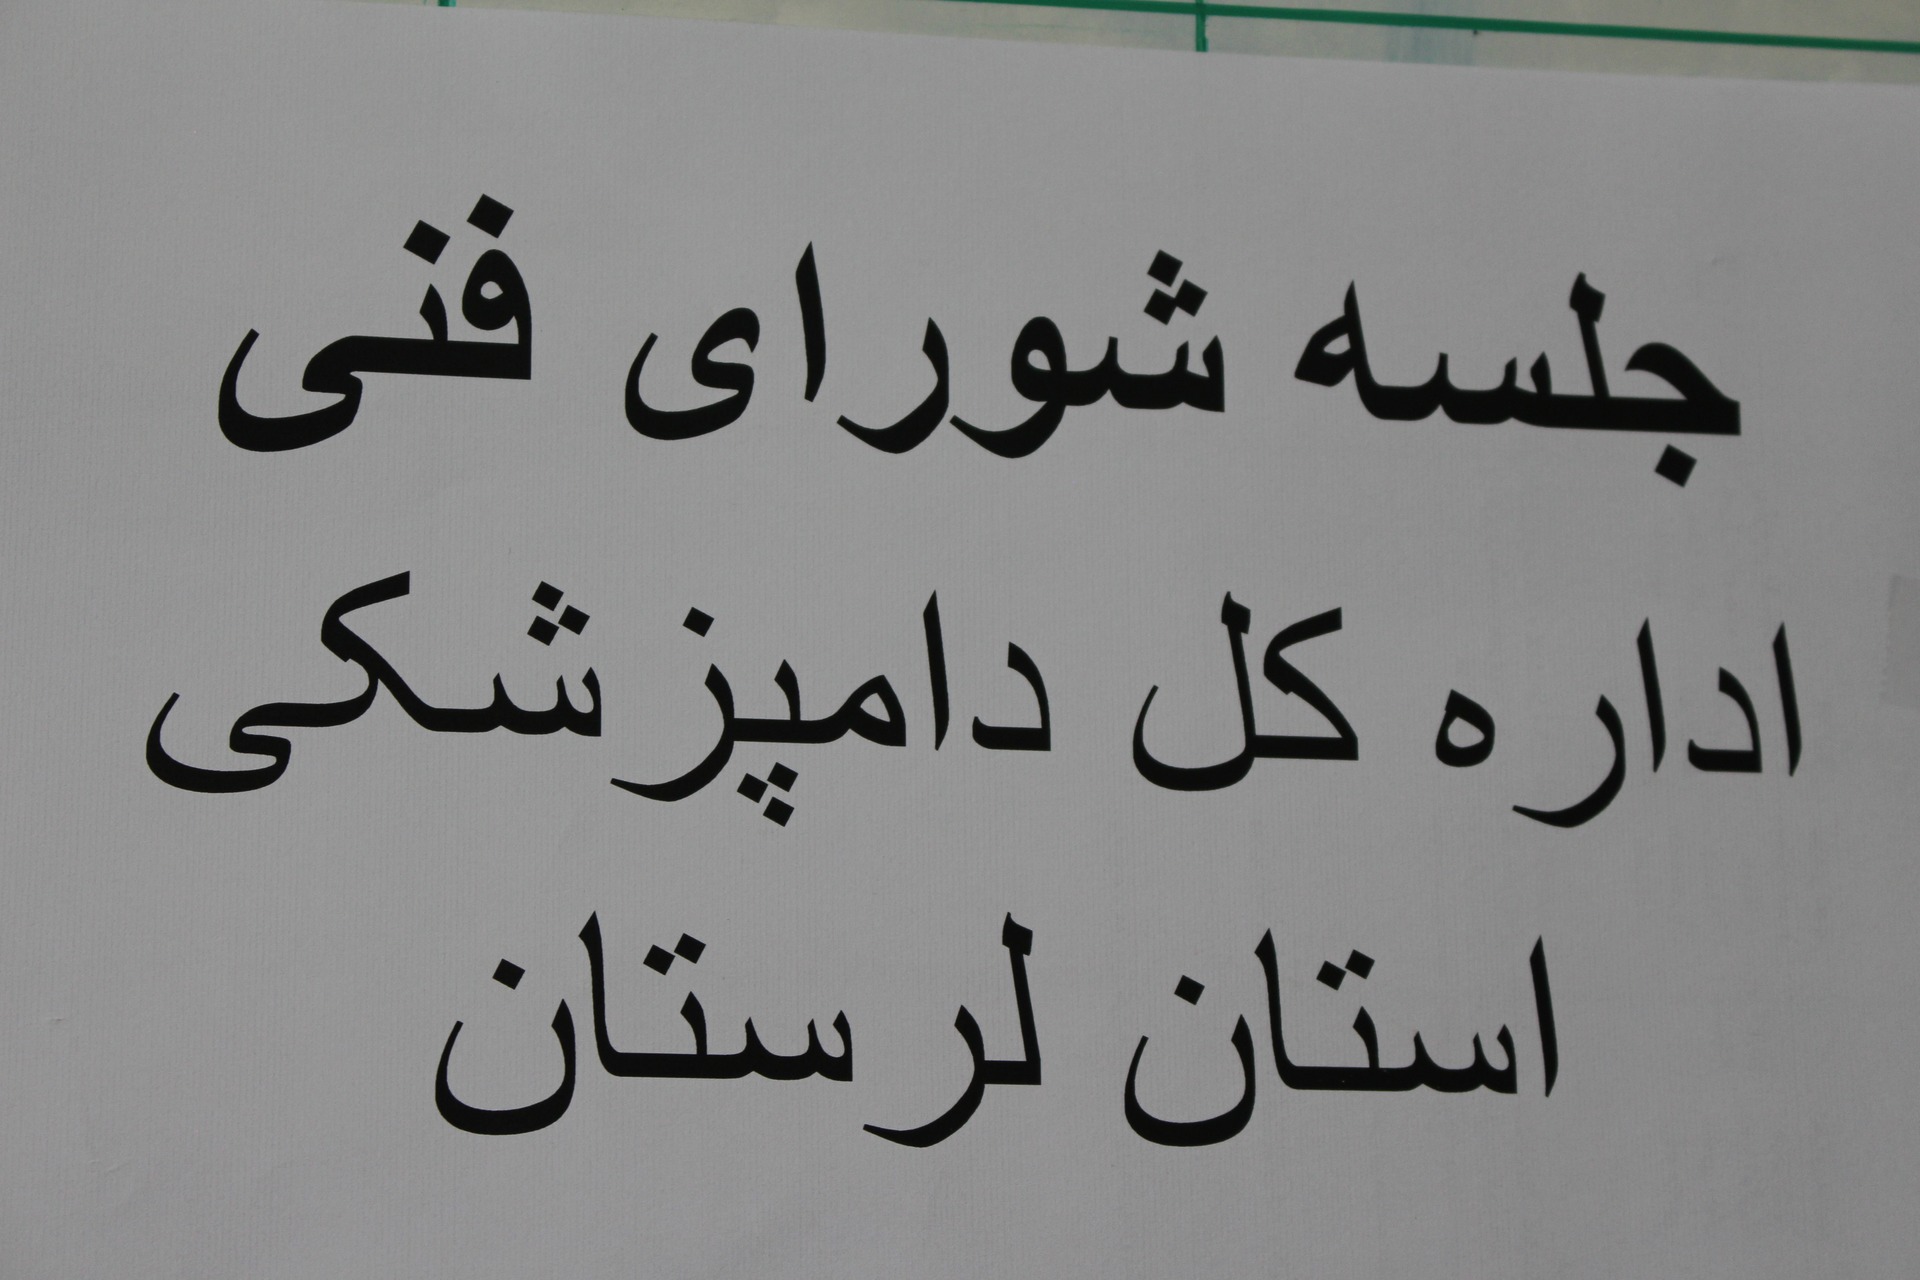 جلسه شورای فنی
اداره کل دامپزشکی
استان لرستان